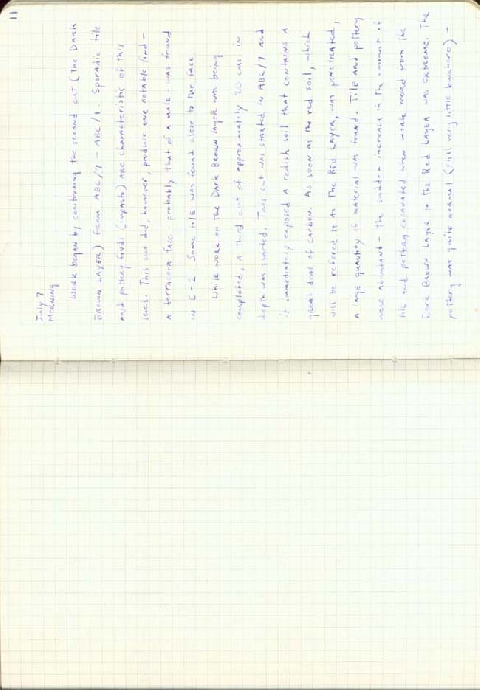 11
July 7
Morning
Work began by continuing the second cut (the Dark
Brown Layer) from ABC/7 - ABC/1. Sporadic tile
and pottery finds are characteristic of this
level. This cut did, however, produce one notable find -
a terracotta face probably that of a mask. was found
in C-2. Some was found close to the face
While work on the Dark Brown layer was being
completed, a third cut of approximately 20 cms in
depth was started. This cut was started in ABC/7 and
it immediately exposed a redish soil that contains a
great deal of carbon. As soon as the red soil, which
will be refered to as The Red Layer, was penetrated,
a large quantity of material was found. Tile and pottery
were abundant - the sudden increase in the amount of
tile and pottery excavated when we moved from the
Dark Brown Layer to the Red Layer was extreme. The
pottery was quite unusual